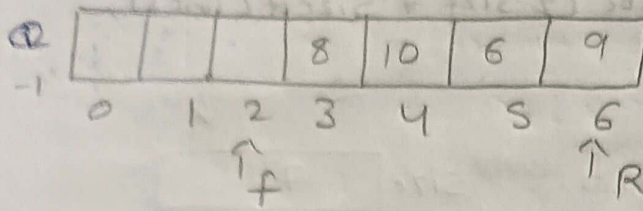 Q 8 10 6 9
-1 0 1 2 3 4 5 6
↑f ↑R